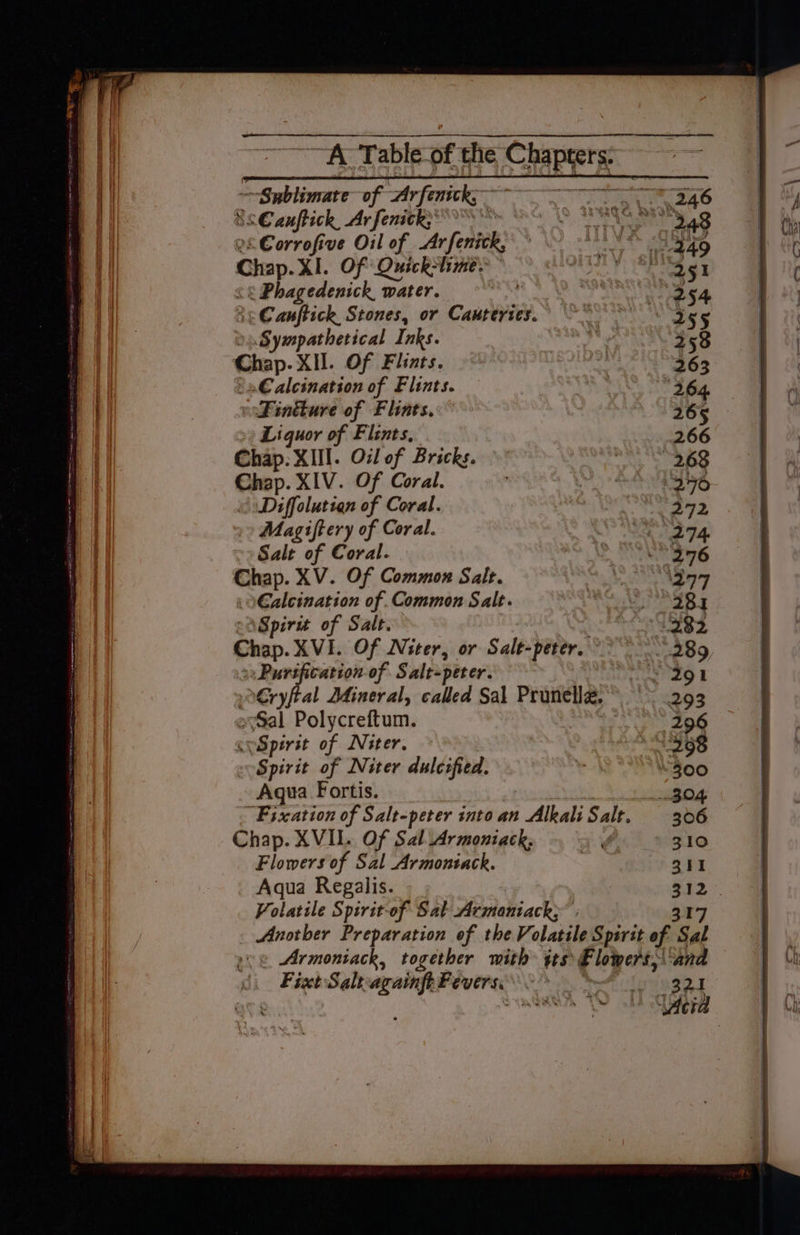 A Table of the Chapters.
Sublimate of Arſenick, 246
Cauſtick Arſenick, 248
Corroſive Oil of Arſenick, 249
Chap. XI. Of Quick-lime. 251
Phagedenick water. 254
Cauſtick Stones, or Cauteries. 255
Sympathetical Inks. 258
Chap. XII. Of Flints. 263
Calcination of Flints. 264
Tincture of Flints. 265
Liquor of Flints. 266
Chap. XIII. Oil of Bricks. 268
Chap. XIV. Of Coral. 270
Diſſolution of Coral. 272
Magiſtery of Coral. 274
Salt of Coral. 276
Chap. XV. Of Common Salt. 277
Calcination of Common Salt. 281
Spirit of Salt. 282
Chap. XVI. Of Niter, or Salt-peter. 289
Purification of Salt-peter. 291
Cryſtal Mineral, called Sal Prunellæ, 293
Sal Polycreſtum. 296
Spirit of Niter. 298
Spirit of Niter dulcified. 300
Aqua Fortis. 304
Fixation of Salt-peter into an Alkali Salt. 306
Chap. XVII. Of Sal Armoniack, 310
Flowers of Sal Armoniack. 311
Aqua Regalis. 312
Volatile Spirit of Sal Armoniack, 317
Another Preparation of the Volatile Spirit of Sal
Armoniack, together with its Flowers, and
Fixt Salt againſt Fevers. 321
Acid